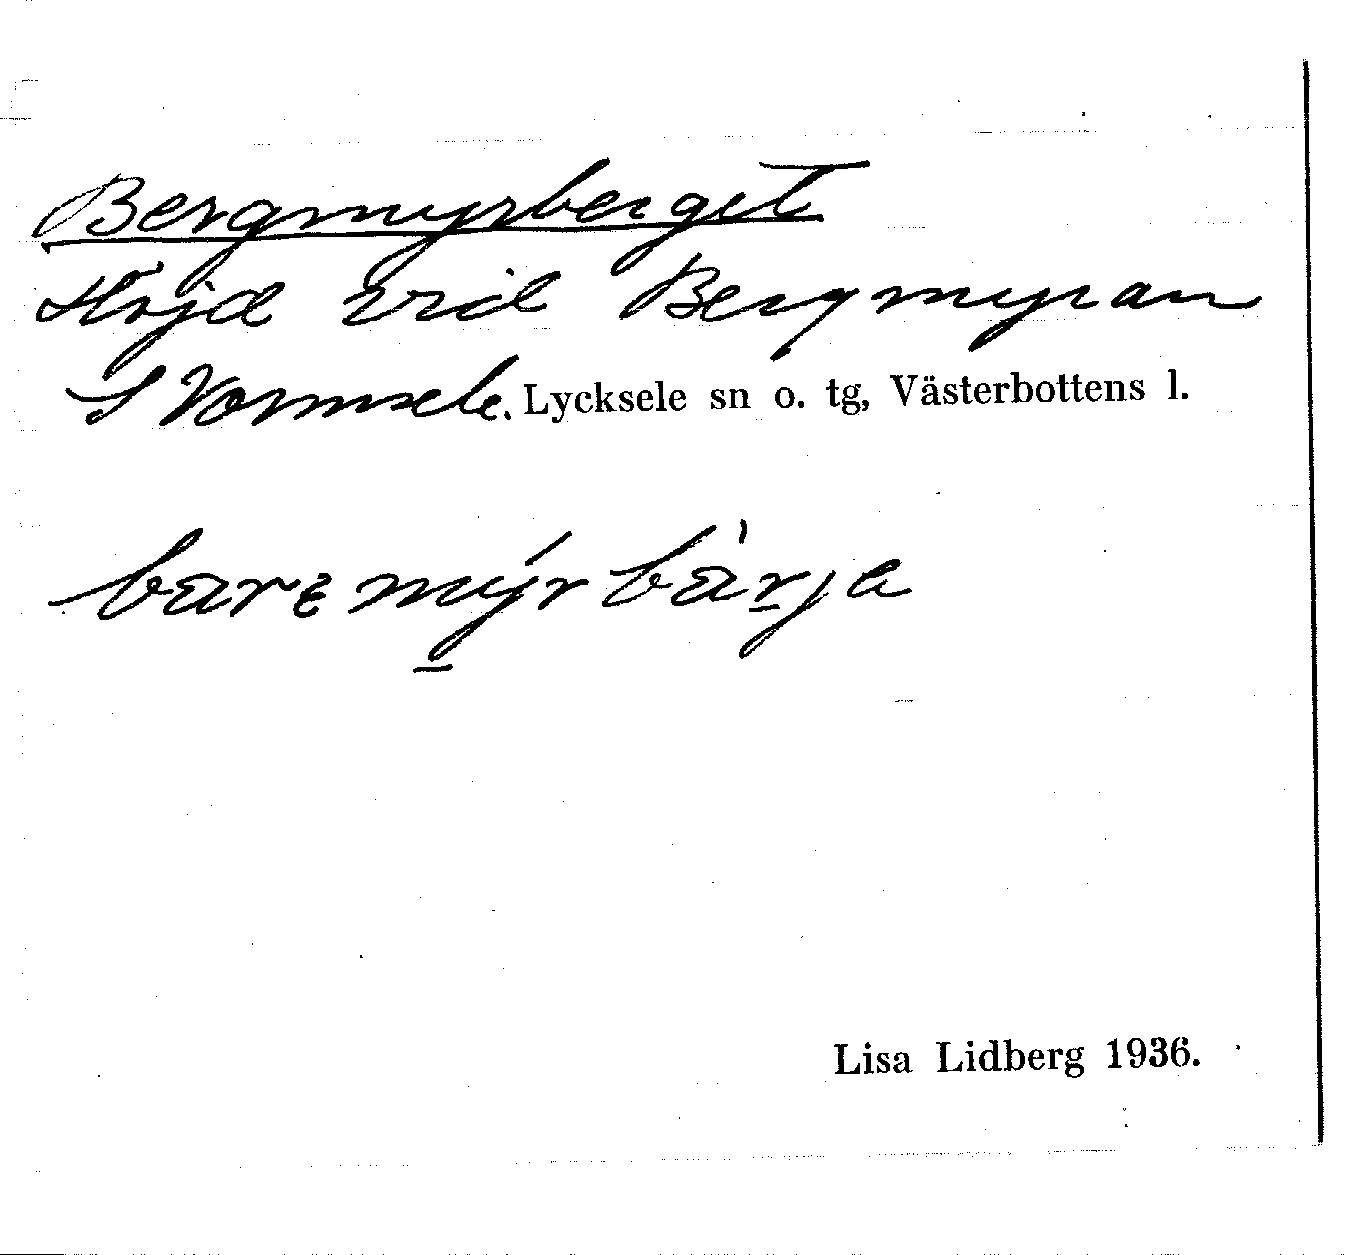 Bergmyrberget
Höjd vid Bergmyran
S Vormsele. Lycksele sn o. tg, Västerbottens l.
Lisa Lidberg 1936.